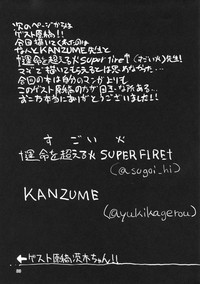 次のページからは
ゲスト原稿!!
今回描いてくれたのは
なんとKANZUME先生と
†運命を超える火super fire†(すごい火)先生!
マジで描いてもらえるとは思わなかった…
今回の本は自分のマンガよりも
このゲスト原稿の方が
本当にありがとうございました!!
すごい火
†運命を超える火 SUPER FIRE†
(@sugoi_hi)
KANZUME
(@yukikagerou)
←ゲスト原稿茨木ちゃん!!